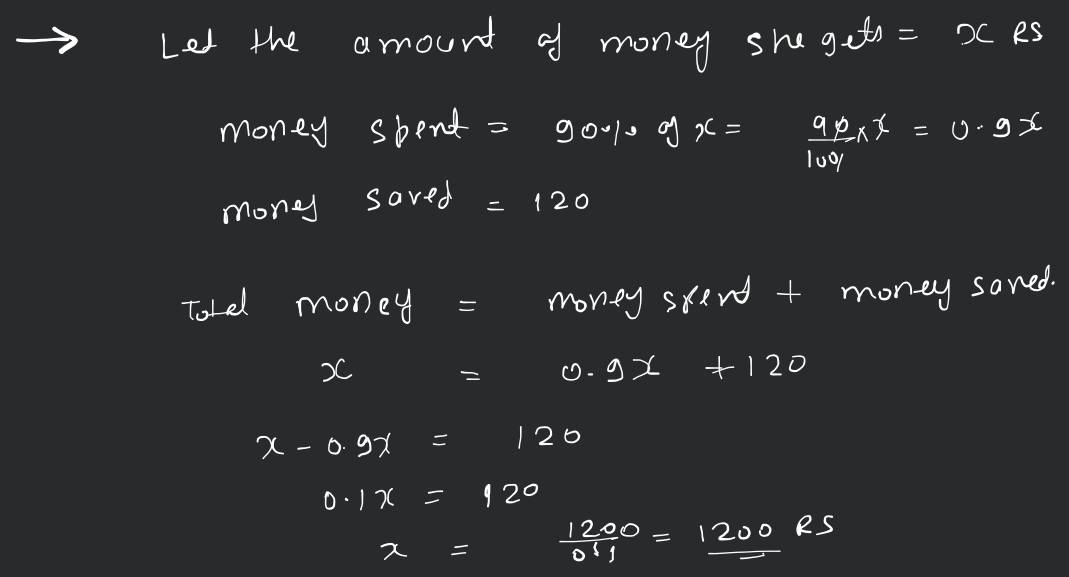 → Let the amount of money she gets = x RS
money spent = 90% of x = 90/100 × x = 0.9x
money saved = 120
Total money = money spend + money saved.
x = 0.9x + 120
x - 0.9x = 120
0.1x = 120
x = 1200/01 = 1200 RS